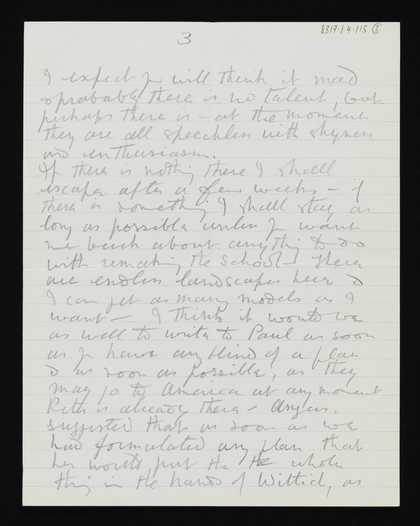 8317.1.4.115 ①
3
I expect you will think it mad
& probably there is no talent, but
perhaps there is – at the moment
they are all speechless with shyness
and enthusiasm.
If there is nothing there I shall
escape after a few weeks – if
there is something I shall stay as
long as possible unless you want
me back about anything to do
with remaking the school. There
are endless landscapes here &
I can get as many models as I
want – I think it would be
as well to write to Paul as soon
as you have any kind of a plan
& as soon as possible, as they
may go to America at any moment
Ruth is already there – Angus.
suggested that as soon as we
had formulated any plan that
he would put the the whole
thing in the hands of Wittich, as